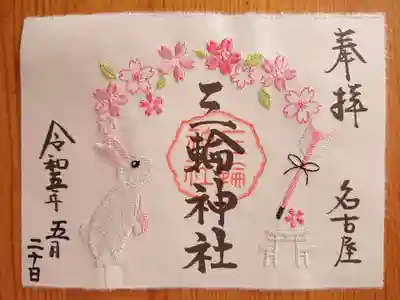 奉拝
名古屋
三輪神社
令和五年五月
二十日